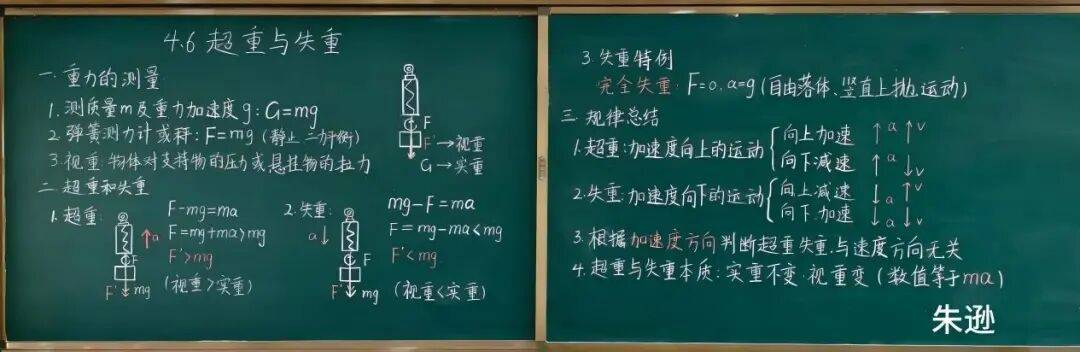 4.6 超重与失重
一.重力的测量
1.测质量m及重力加速度g:G=mg
2.弹簧测力计或秤:F=mg(静止 二力平衡)
3.视重:物体对支持物的压力或悬挂物的拉力
F
F'→视重
G→实重
二.超重和失重
1.超重:
a
F
F'
mg
F-mg=ma
F=mg+ma>mg
F'>mg
(视重>实重)
2.失重:
a↓
F
F'
mg
mg-F=ma
F=mg-ma<mg
F'<mg
(视重<实重)
3.失重特例
完全失重:F=0,a=g(自由落体、竖直上抛运动)
三.规律总结
1.超重:加速度向上的运动{向上加速 ↑a↑v
向下减速 ↑a↓v
2.失重:加速度向下的运动{向上减速 ↓a↑v
向下加速 ↓a↓v
3.根据加速度方向判断超重失重,与速度方向无关
4.超重与失重本质:实重不变.视重变(数值等于ma)
朱逊